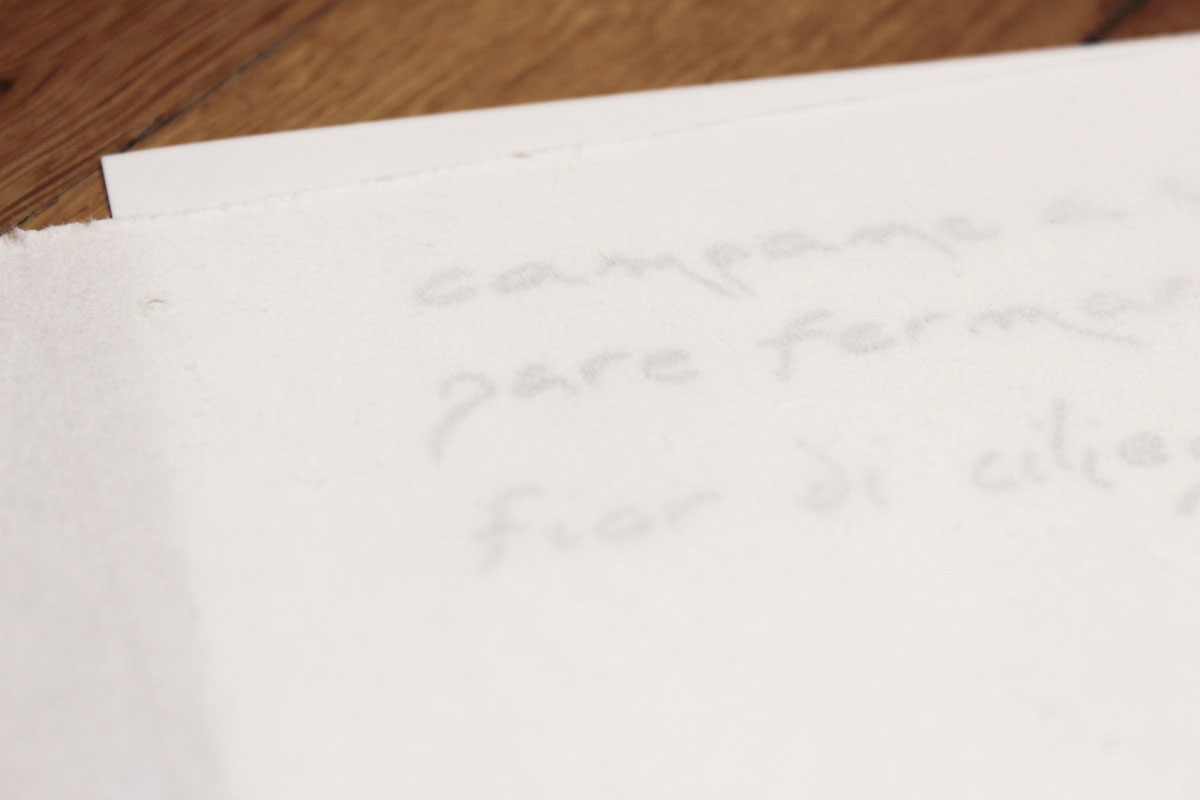 campana
pare fermar
fior di cilieg